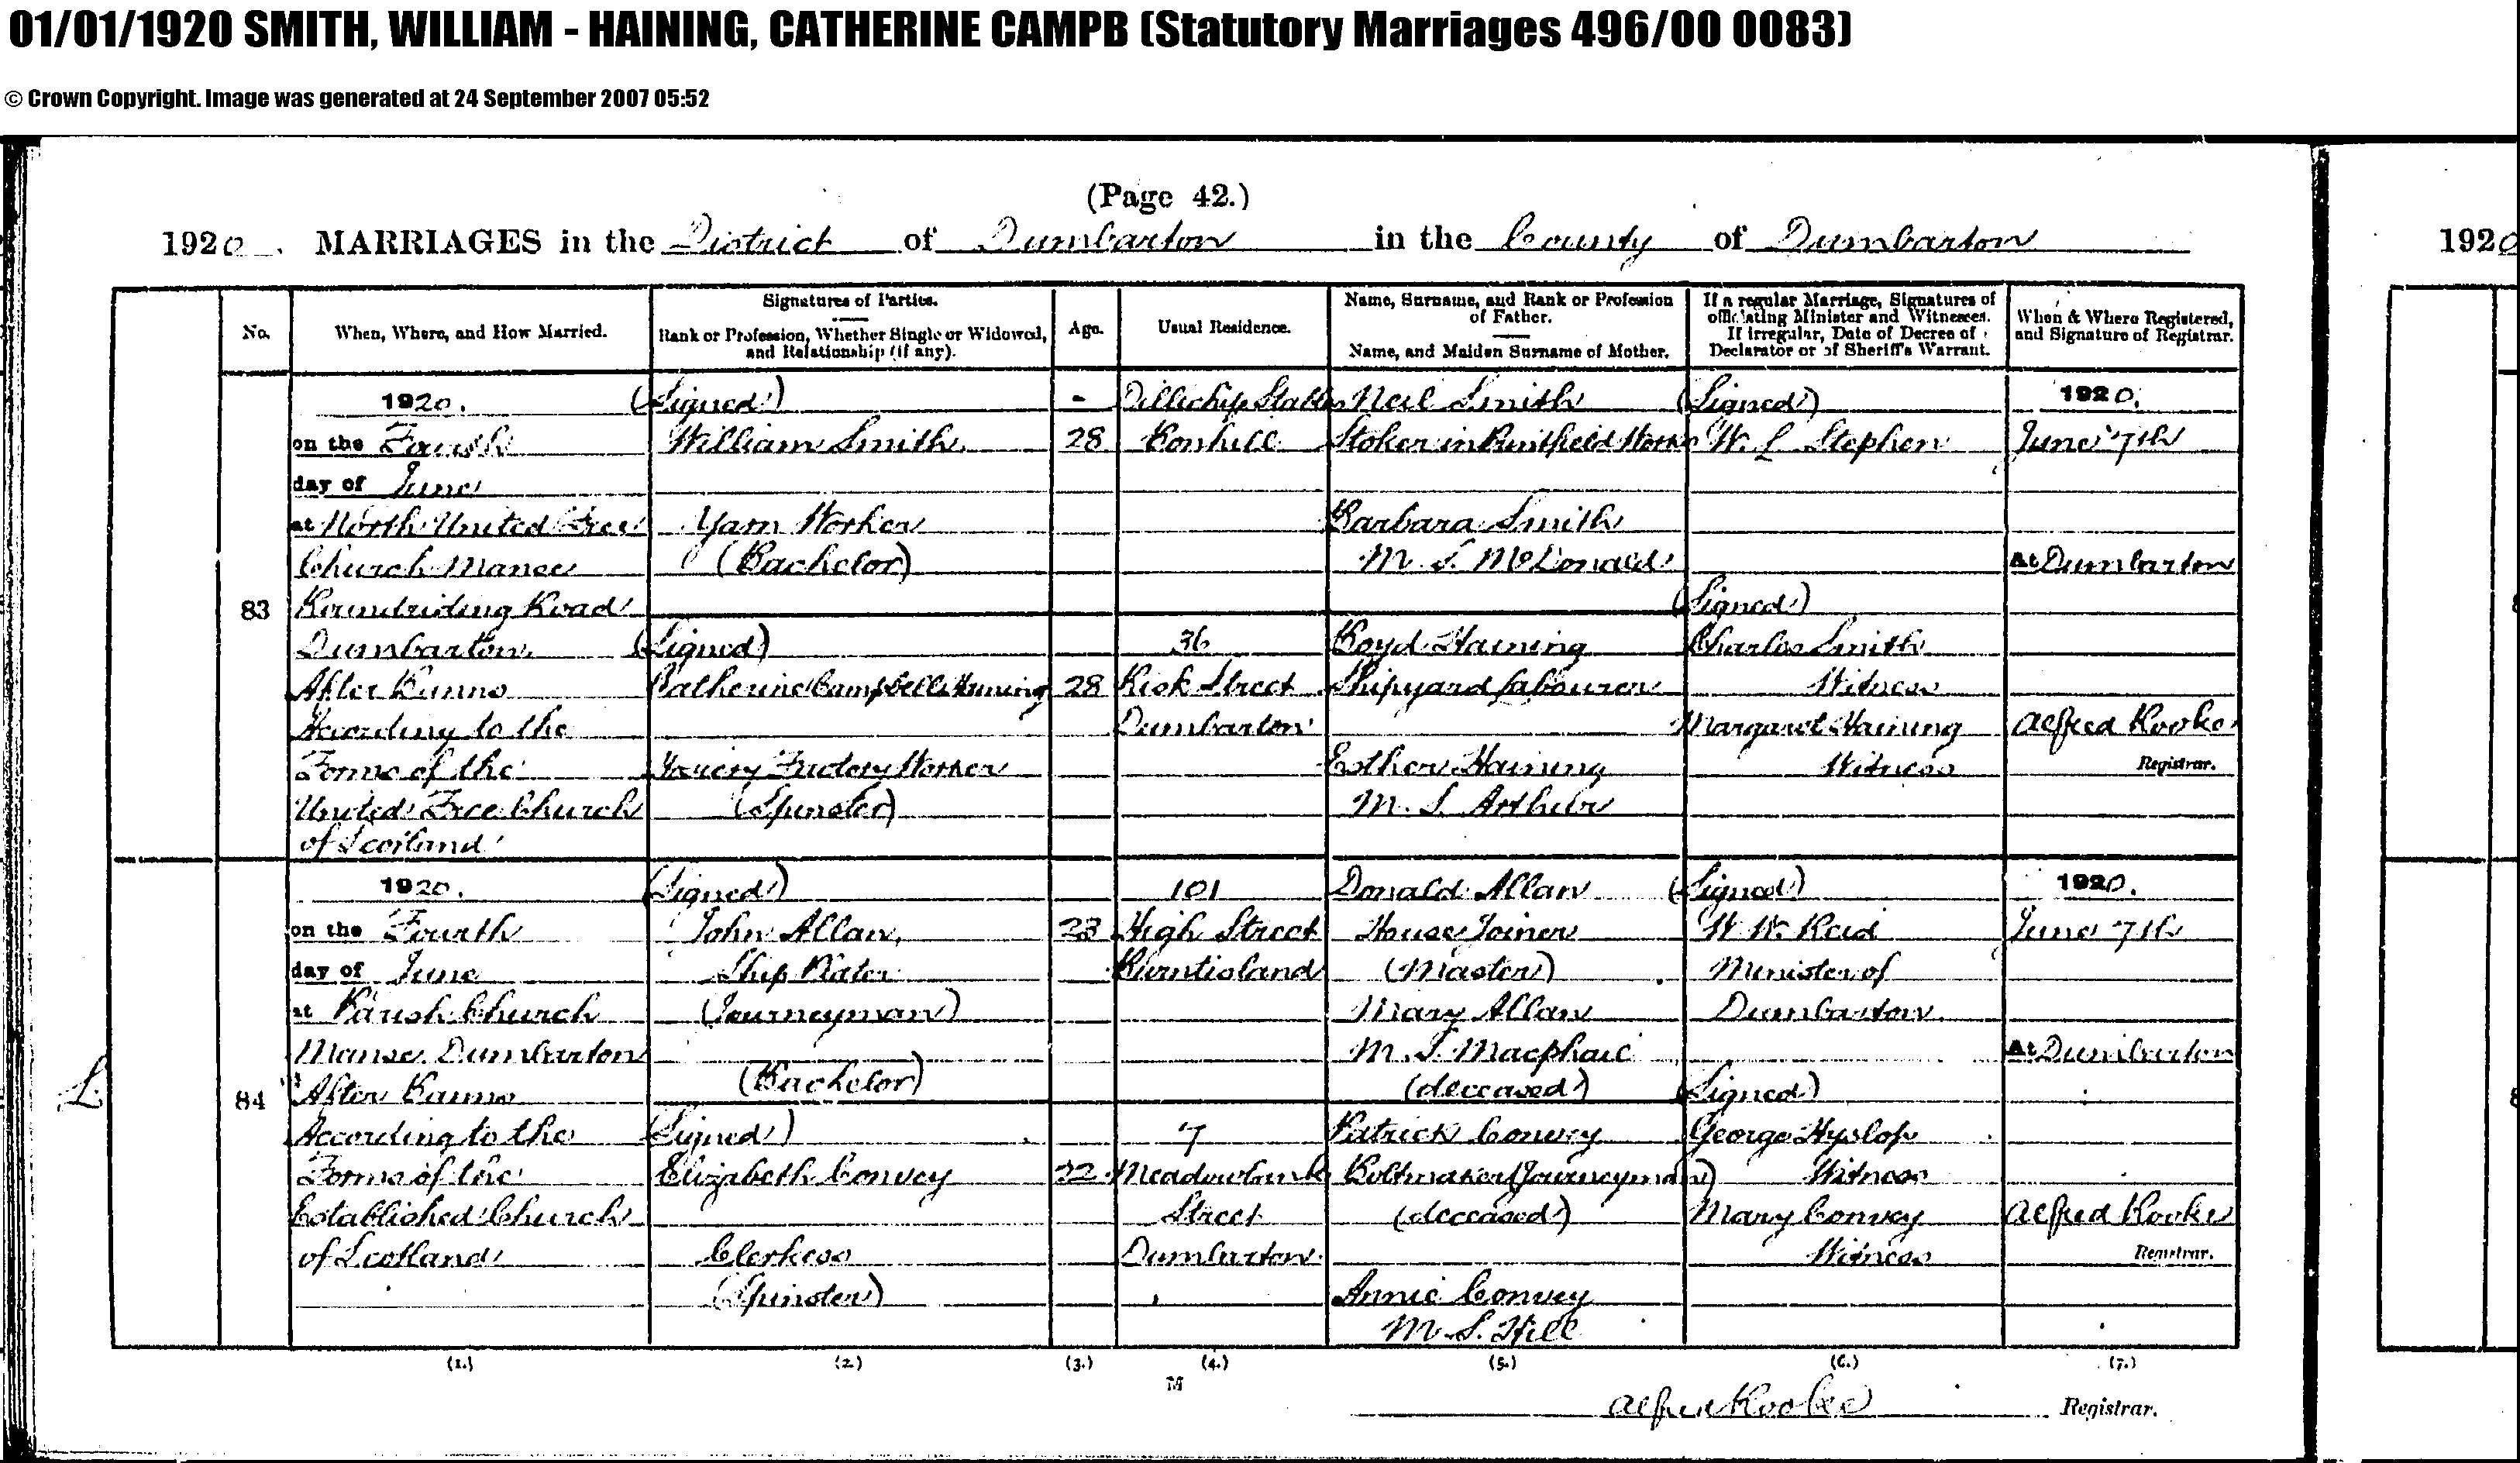 01/01/1920 SMITH, WILLIAM - HAINING, CATHERINE CAMPB (Statutory Marriages 496/00 0083)
© Crown Copyright. Image was generated at 24 September 2007 05:52
(Page 42.)
1920. MARRIAGES in the District of Dumbarton in the County of Dumbarton
1920
No.
When, Where, and How Married.
Signatures of Parties.
Rank or Profession, Whether Single or Widowed,
and Relationship (if any).
Age.
Usual Residence.
Name, Surname, and Rank or Profession
of Father.
Name, and Maiden Surname of Mother.
If a regular Marriage, Signatures of
officiating Minister and Witnesses.
If irregular, Date of Decree of
Declarator or of Sheriff's Warrant.
When & Where Registered,
and Signature of Registrar.
83
1920.
on the Fourth
day of June
at North United Free
Church Manse
Roundriding Road
Dumbarton.
After Banns
According to the
Forms of the
United Free Church
of Scotland
(Signed)
William Smith.
Yarn Worker
(Bachelor)
(Signed)
Catherine Campbell Haining
Factory Worker
(Spinster)
28
28
Dillichip Stables
Bonhill
36
Risk Street
Dumbarton
Neil Smith
Stoker in Printfield Works
Barbara Smith
M. S. McDonald
Boyd Haining
Shipyard Labourer
Esther Haining
M. S. Arthur
(Signed)
W. L. Stephen
(Signed)
Charles Smith
Witness
Margaret Haining
Witness
1920.
June 7th
At Dumbarton
Alfred Rooke
Registrar.
84
1920.
on the Fourth
day of June
at Parish Church
Manse Dumbarton
After Banns
According to the
Forms of the
Established Church
of Scotland
(Signed)
John Allan,
Ship Plater
(Journeyman)
(Bachelor)
(Signed)
Elizabeth Convey
Clerkess
(Spinster)
23
22
101
High Street
Burntisland
7
Meadowbank
Street
Dumbarton.
Donald Allan
House Joiner
(Master)
Mary Allan
M. S. Macphail
(deceased)
Patrick Convey
Boltmaker (Journeyman)
(deceased)
Annie Convey
M. S. Hill
(Signed)
W. W. Reid
Minister of
Dumbarton.
(Signed)
George Hyslop
Witness
Mary Convey
Witness
1920.
June 7th
At Dumbarton
Alfred Rooke
Registrar.
(1.) (2.) (3.) (4.) (5.) (6.) (7.)
M
Alfred Rooke Registrar.